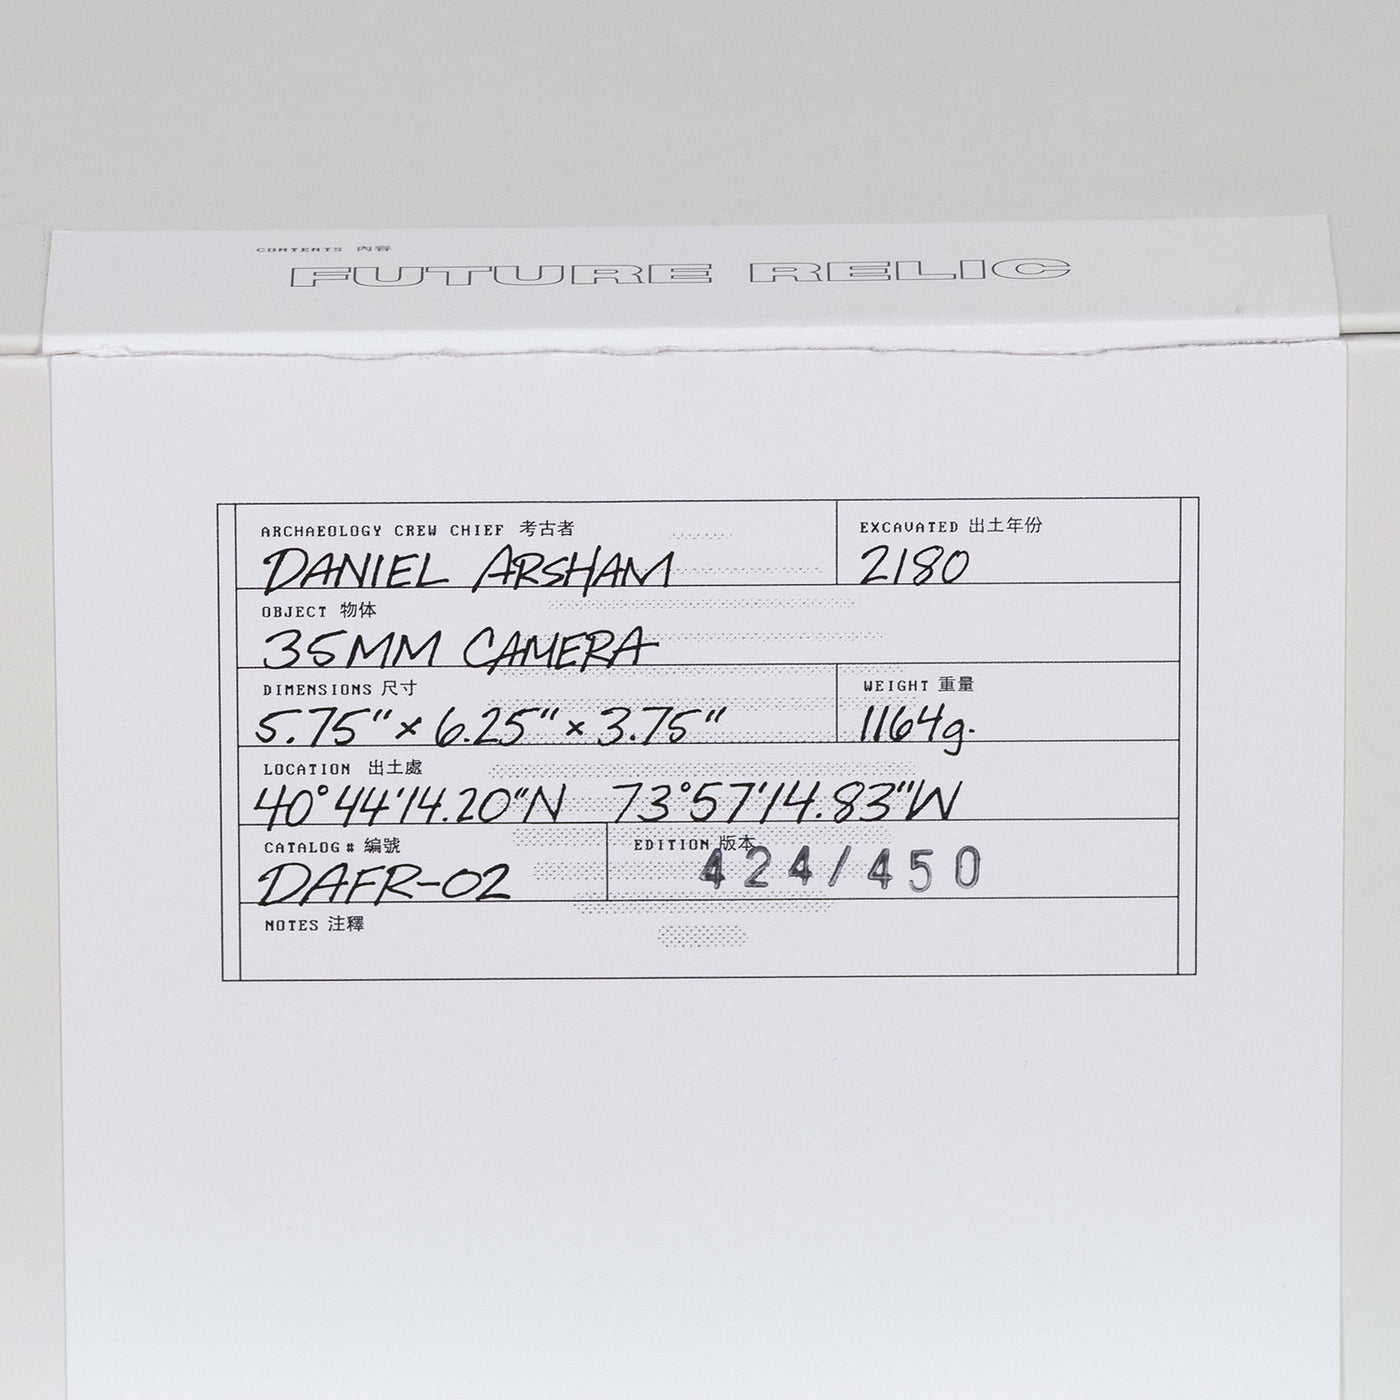 CONTENTS 內容
FUTURE RELIC
ARCHAEOLOGY CREW CHIEF 考古者
DANIEL ARSHAM
EXCAVATED 出土年份
2180
OBJECT 物体
35MM CAMERA
DIMENSIONS 尺寸
5.75" x 6.25" x 3.75"
WEIGHT 重量
1164g.
LOCATION 出土處
40°44'14.20"N 73°57'14.83"W
CATALOG # 編號
DAFR-02
EDITION 版本
424/450
NOTES 注釋